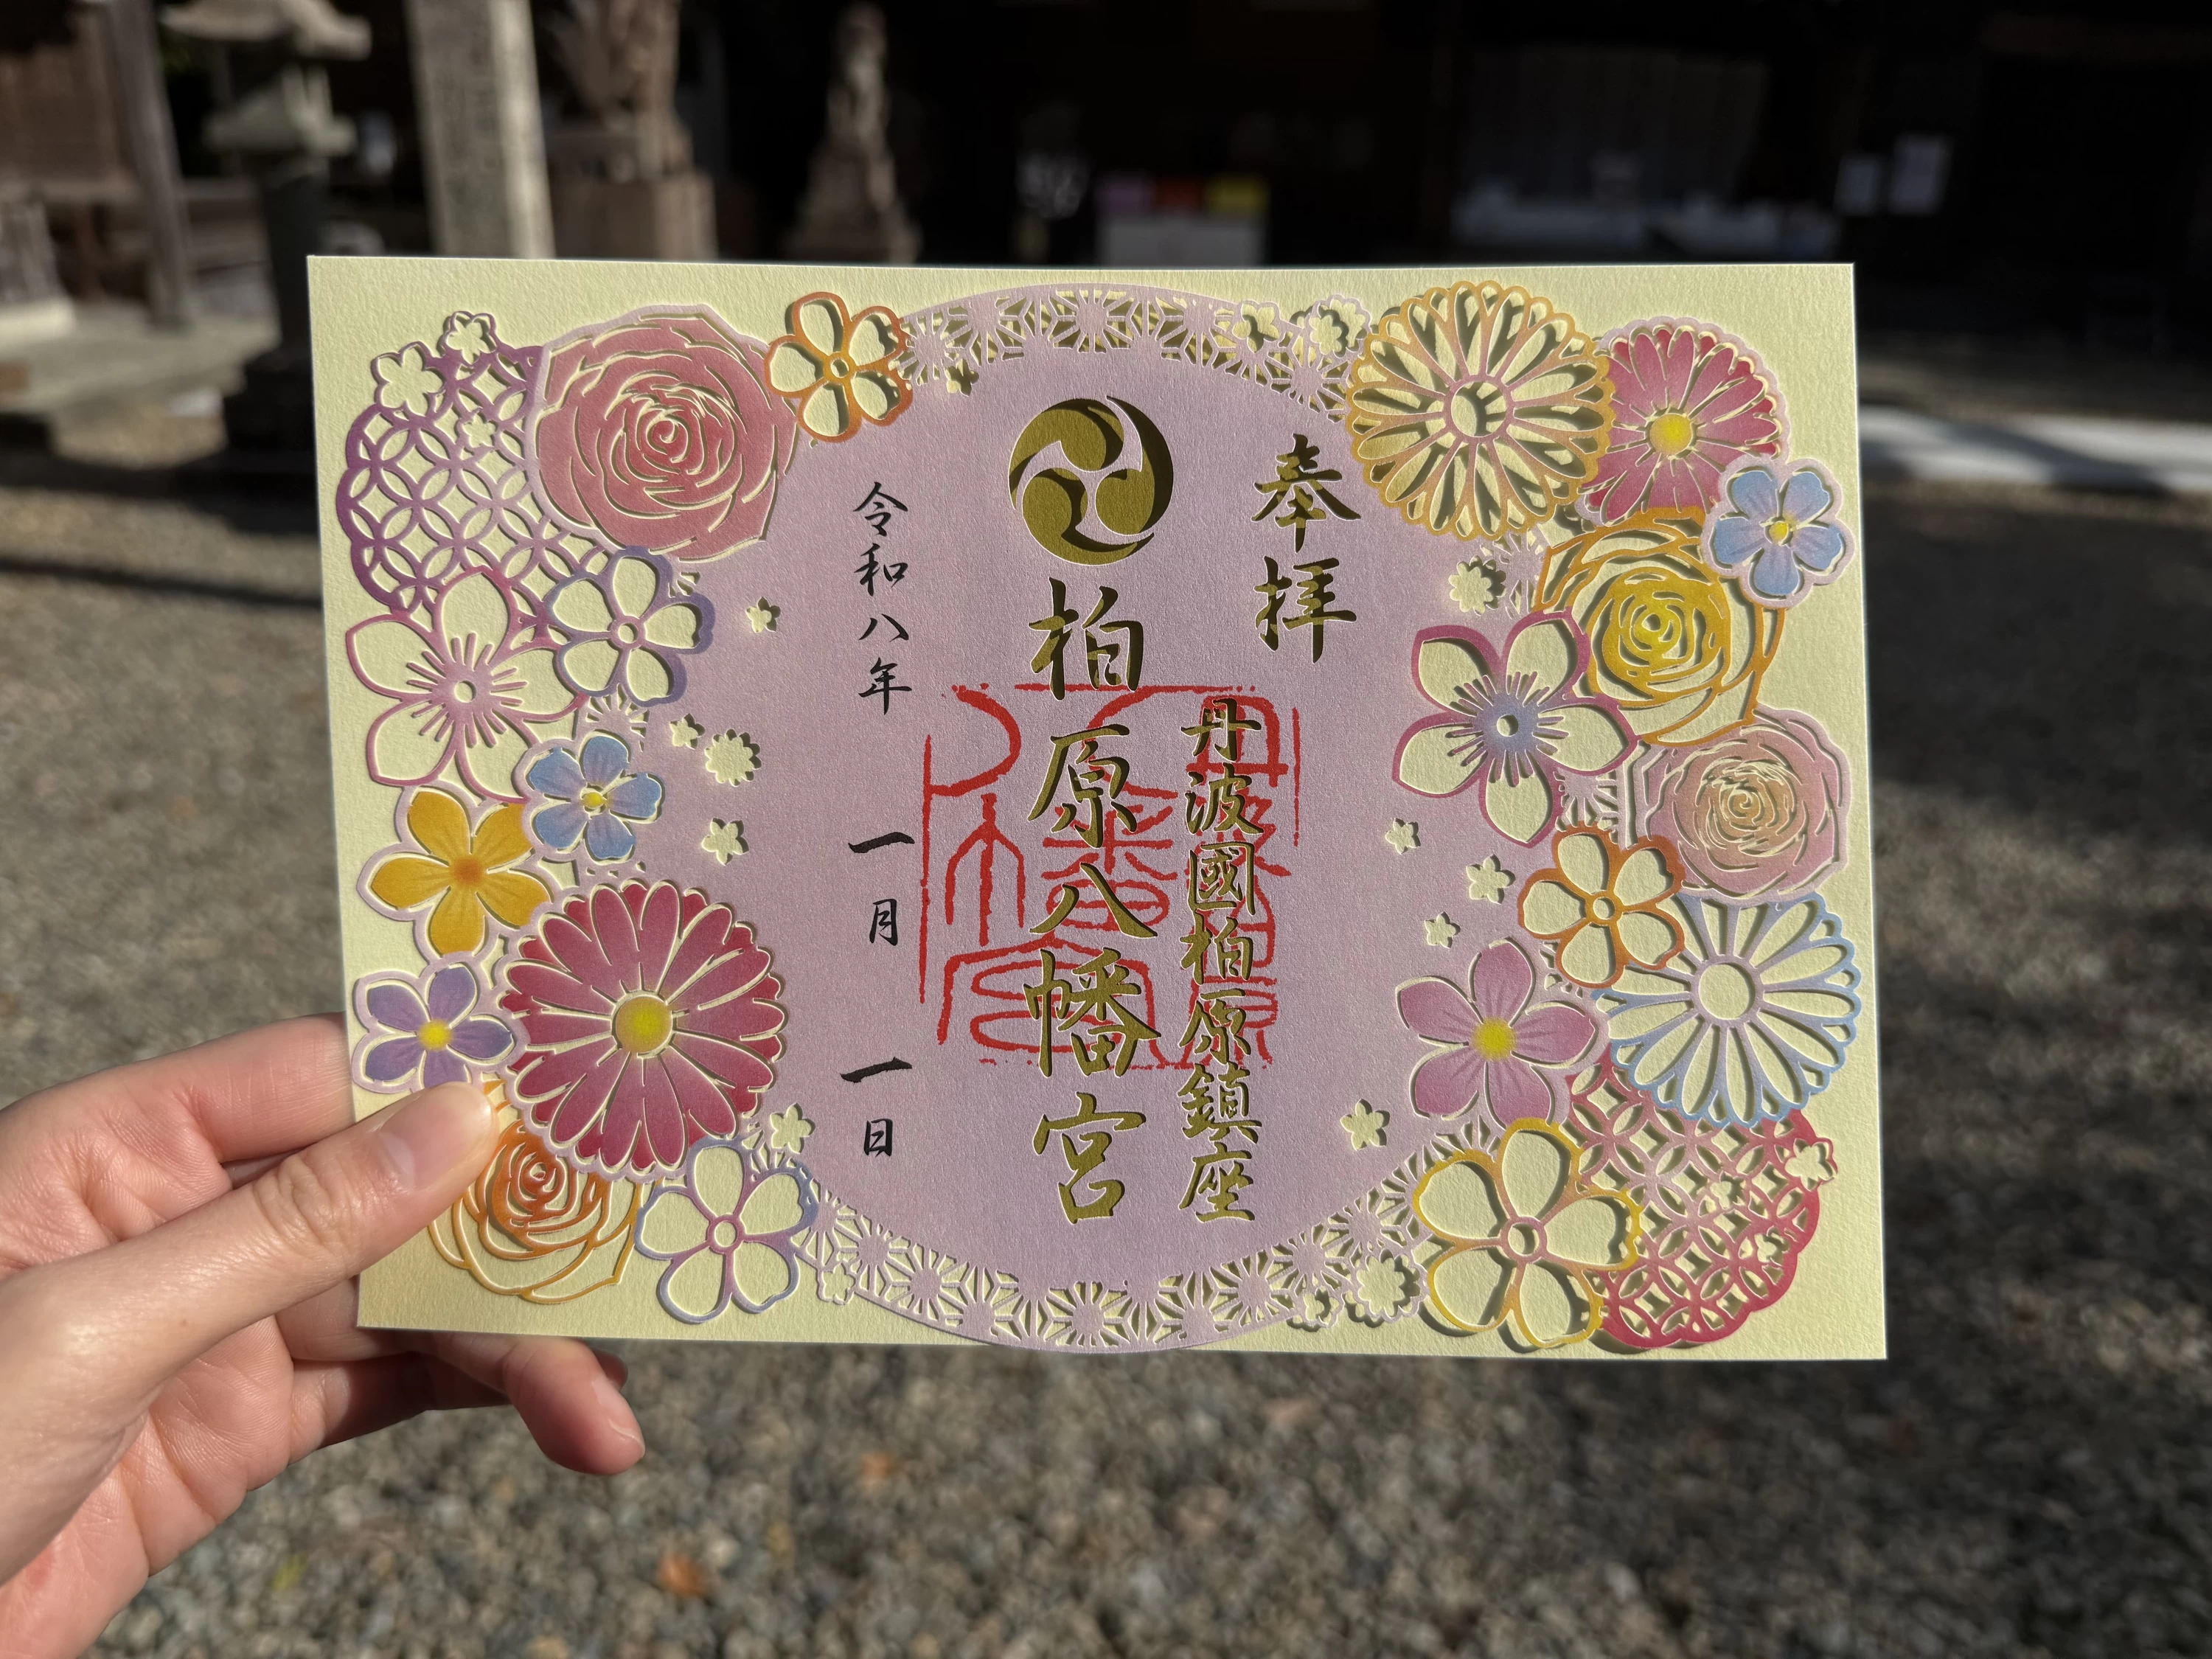 奉拝
丹波國柏原鎮座
柏原八幡宮
令和八年 一月 一日